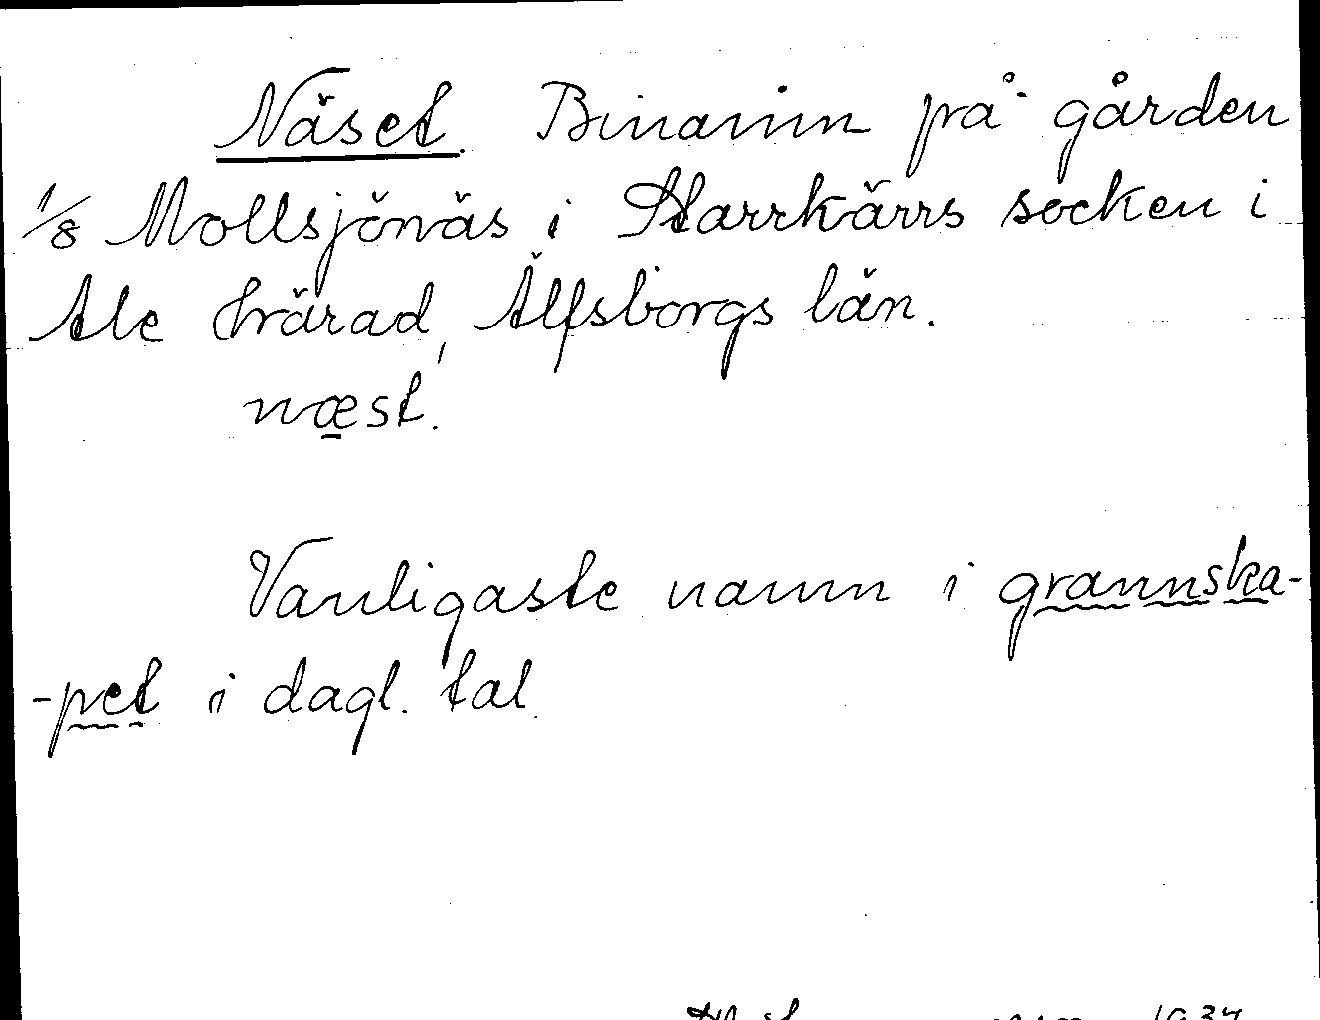 Näset. Binamn på gården
1/8 Mollsjönäs i Starrkärrs socken i
Ale härad, Älfsborgs län.
næst.
Vanligaste namn i grannska-
-pet i dagl. tal.
1934